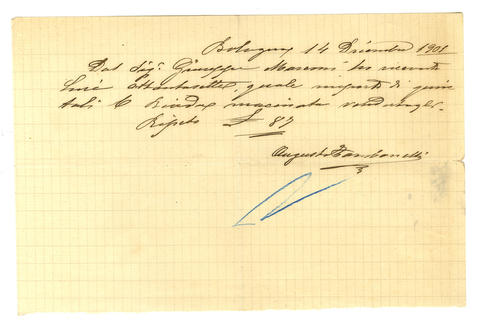 Bologna 14 Dicembre 1901
Dal Sig. Giuseppe Marconi ho ricevuto
Lire Ottantasette, quale importo di quin
tali 6 macinata vendutagli.
Ripeto £ 87
Augusto